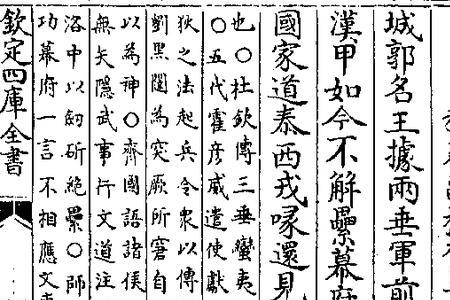 城郭名王據兩垂軍前
漢甲如今不解纍幕府
國家道泰西戎喙還見
也〇杜欽傳三垂蠻夷
〇五代霍彥威遣使獻
狄之法起兵令衆以傳
劉黑闥為突厥所窘自
以為神〇齊國語諸侯
無矢隱武事行文道注
洛中以劒斫絶纍〇師
功幕府一言不相應文
欽定四庫全書